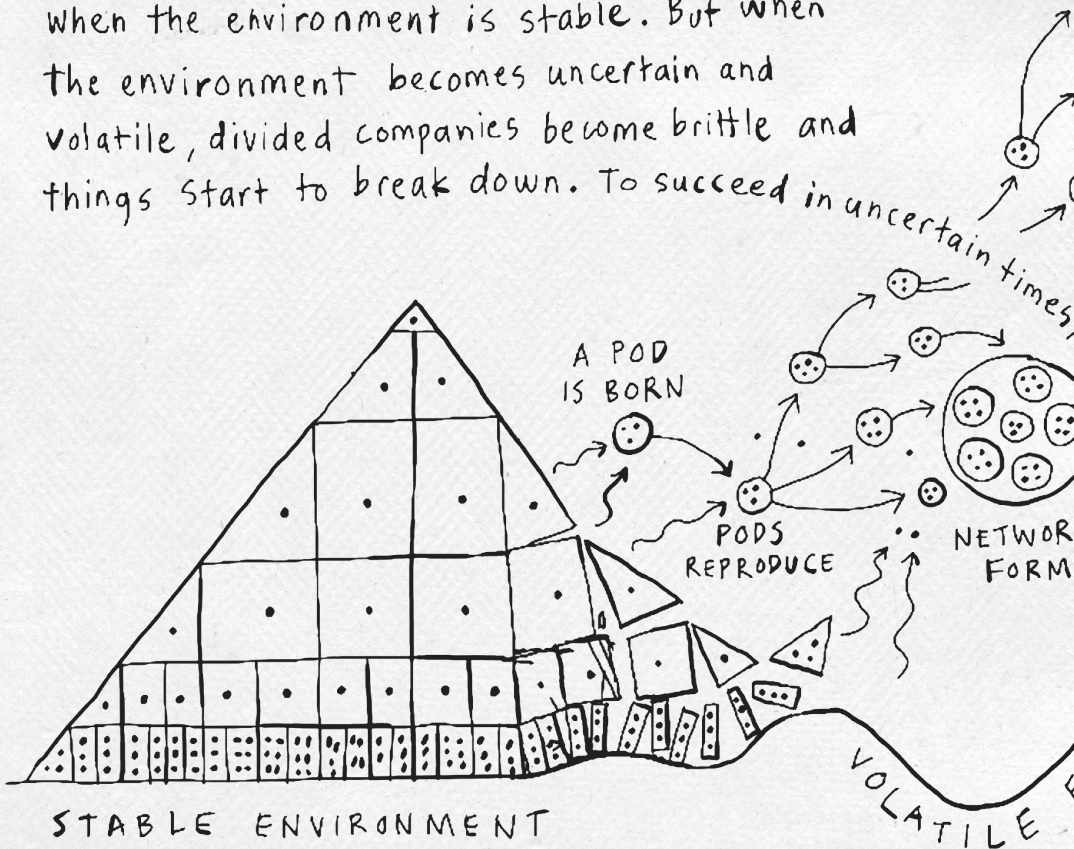 when the environment is stable. But when
the environment becomes uncertain and
volatile, divided companies become brittle and
things start to break down. To succeed in uncertain times
A POD
IS BORN
PODS
REPRODUCE
NETWOR
FORM
STABLE ENVIRONMENT
VOLATILE E